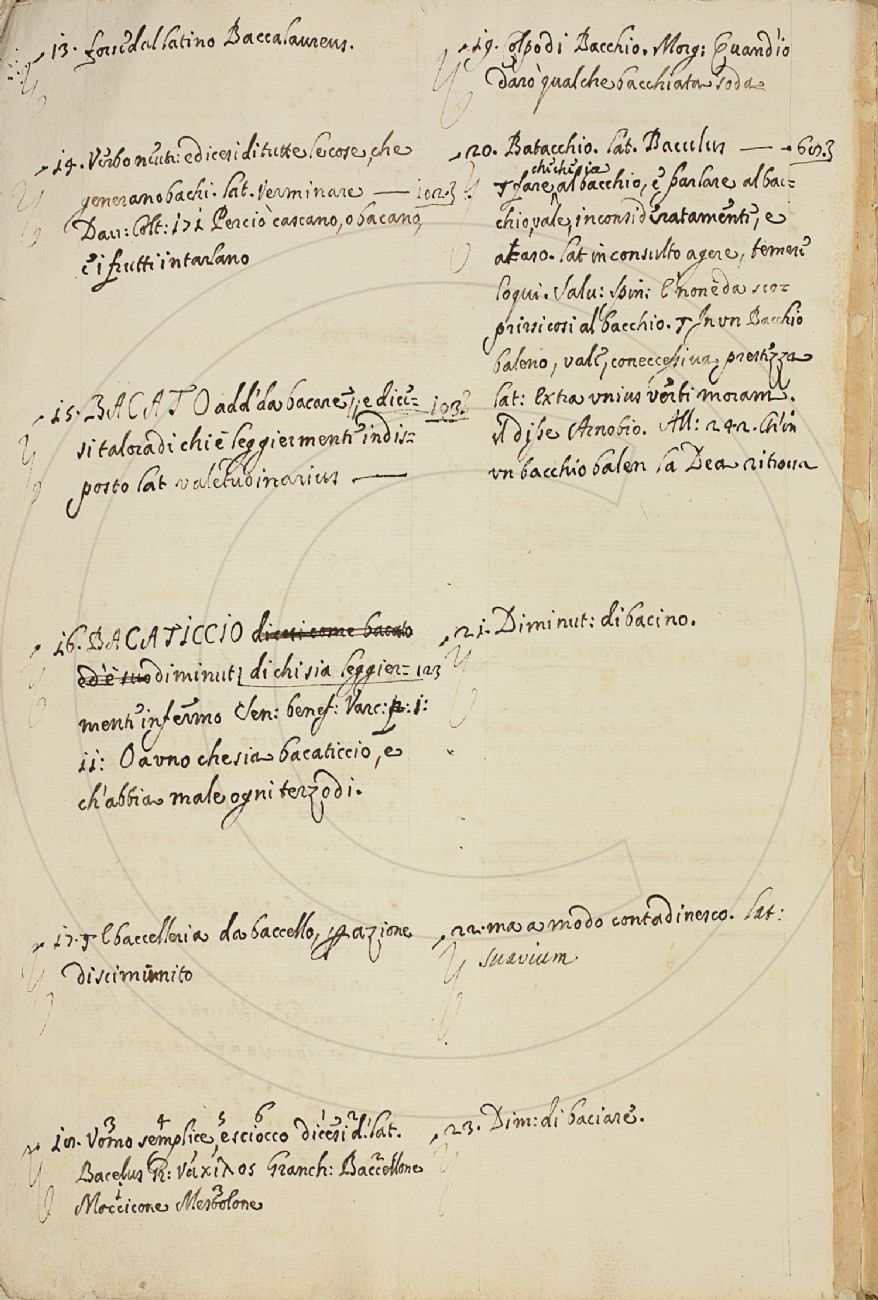 13. forse dal latino Baccalaureus.
14. Verbo neut: e dicesi di tutte le cose, che
generano bachi. lat. verminare —
Dav: Colt: 171 Perciò cascano, o bacano,
e i frutti intarlano
15. BACATO add: da bacare, e dice=
si talora di chi è leggiermente indis=
posto lat valetudinarius —
16. BACATICCIO dicesi come bacato
ed è suo diminut: di chi sia leggier= 123
mente infermo Sen: benef: Varc: p: 1:
11: O a uno che sia bacaticcio, e
ch'abbia male ogni terzo dì.
17. E baccelleria da baccello, azione
di scimunito
Uomo semplice, e sciocco dicesi lat.
Bacelus Gr: βάκιλος Granch: Baccellone
Moccicone Merolone
19. Colpo di Bacchio. Morg: Quand'io
darò qualche bacchiata soda=
20. Batacchio. lat. Baculus —
chicchesia
fare al bacchio, è parlare al bac=
chio, vale, inconsideratamente, e
a caso. lat inconsulto agere, temere
loqui. Salv: Spin: E' non è da sco=
prirsi così al bacchio. In un Bacchio
baleno, vale, con eccessiva prestezza
lat: Extra unius verbi moram.
Il disse Arnobio. All: 242. Ch'in
un bacchio balen la Dea ritrova
21. Diminut: di bacino.
22. ma a modo contadinesco. lat:
suavium
23. Dim: di baciare.